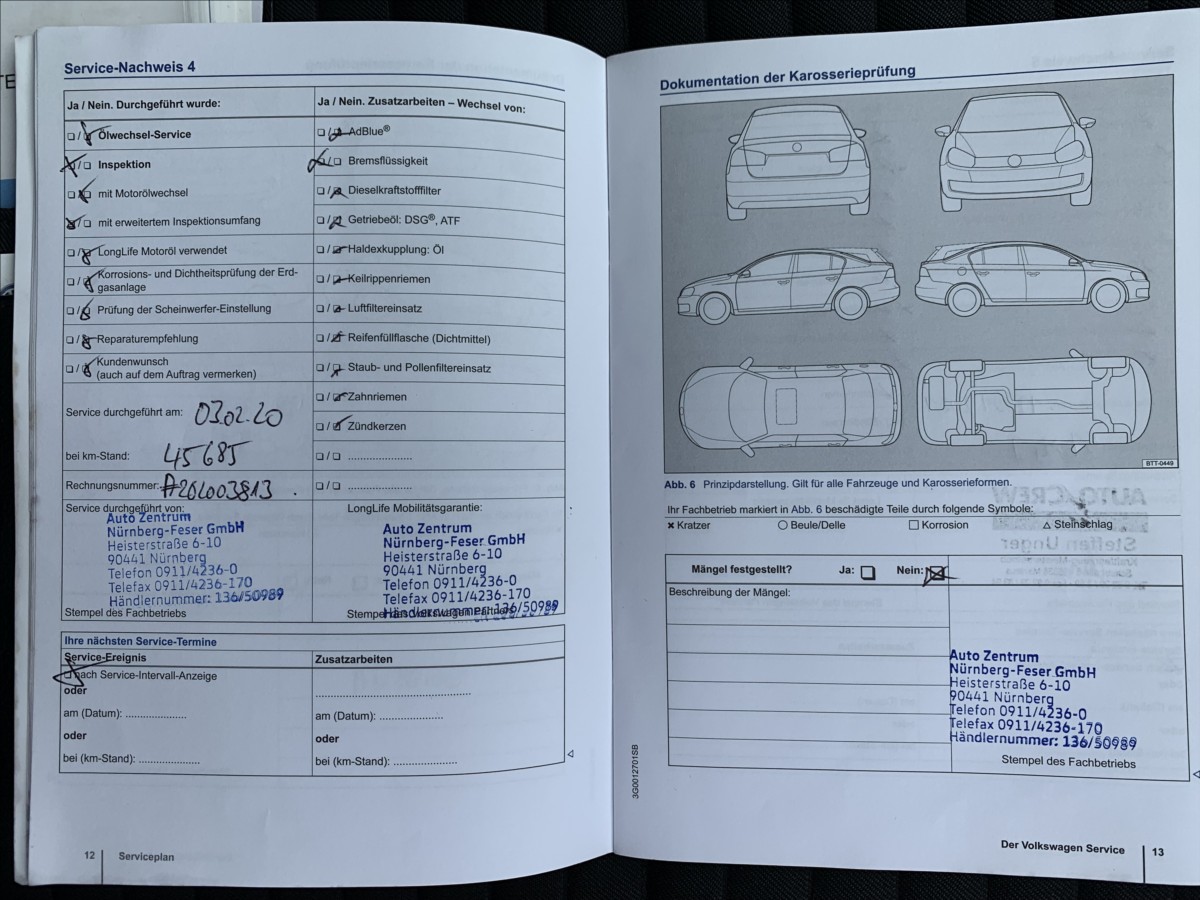 Service-Nachweis 4
Ja / Nein. Durchgeführt wurde:
Ölwechsel-Service
Inspektion
mit Motorölwechsel
mit erweitertem Inspektionsumfang
LongLife Motoröl verwendet
Korrosions- und Dichtheitsprüfung der Erd-
gasanlage
Prüfung der Scheinwerfer-Einstellung
Reparaturempfehlung
Kundenwunsch
(auch auf dem Auftrag vermerken)
Service durchgeführt am: 03.02.20
bei km-Stand: 45685
Rechnungsnummer: A201003813
Service durchgeführt von:
Auto Zentrum
Nürnberg-Feser GmbH
Heisterstraße 6-10
90441 Nürnberg
Telefon 0911/4236-0
Telefax 0911/4236-170
Händlernummer: 136/50989
Stempel des Fachbetriebs
Ja / Nein. Zusatzarbeiten – Wechsel von:
AdBlue®
Bremsflüssigkeit
Dieselkraftstofffilter
Getriebeöl: DSG®, ATF
Haldexkupplung: Öl
Keilrippenriemen
Luftfiltereinsatz
Reifenfüllflasche (Dichtmittel)
Staub- und Pollenfiltereinsatz
Zahnriemen
Zündkerzen
LongLife Mobilitätsgarantie:
Auto Zentrum
Nürnberg-Feser GmbH
Heisterstraße 6-10
90441 Nürnberg
Telefon 0911/4236-0
Telefax 0911/4236-170
Händlernummer: 136/50989
Stempel des Volkswagen Partners
Ihre nächsten Service-Termine
Service-Ereignis
nach Service-Intervall-Anzeige
oder
am (Datum): ...................
oder
bei (km-Stand): ...................
Zusatzarbeiten
am (Datum): ...................
oder
bei (km-Stand): ...................
12 Serviceplan
Dokumentation der Karosserieprüfung
BTT-0449
Abb. 6 Prinzipdarstellung. Gilt für alle Fahrzeuge und Karosserieformen.
Ihr Fachbetrieb markiert in Abb. 6 beschädigte Teile durch folgende Symbole:
× Kratzer ○ Beule/Delle □ Korrosion △ Steinschlag
Mängel festgestellt? Ja: Nein:
Beschreibung der Mängel:
Auto Zentrum
Nürnberg-Feser GmbH
Heisterstraße 6-10
90441 Nürnberg
Telefon 0911/4236-0
Telefax 0911/4236-170
Händlernummer: 136/50989
Stempel des Fachbetriebs
3G0012701SB
Der Volkswagen Service 13